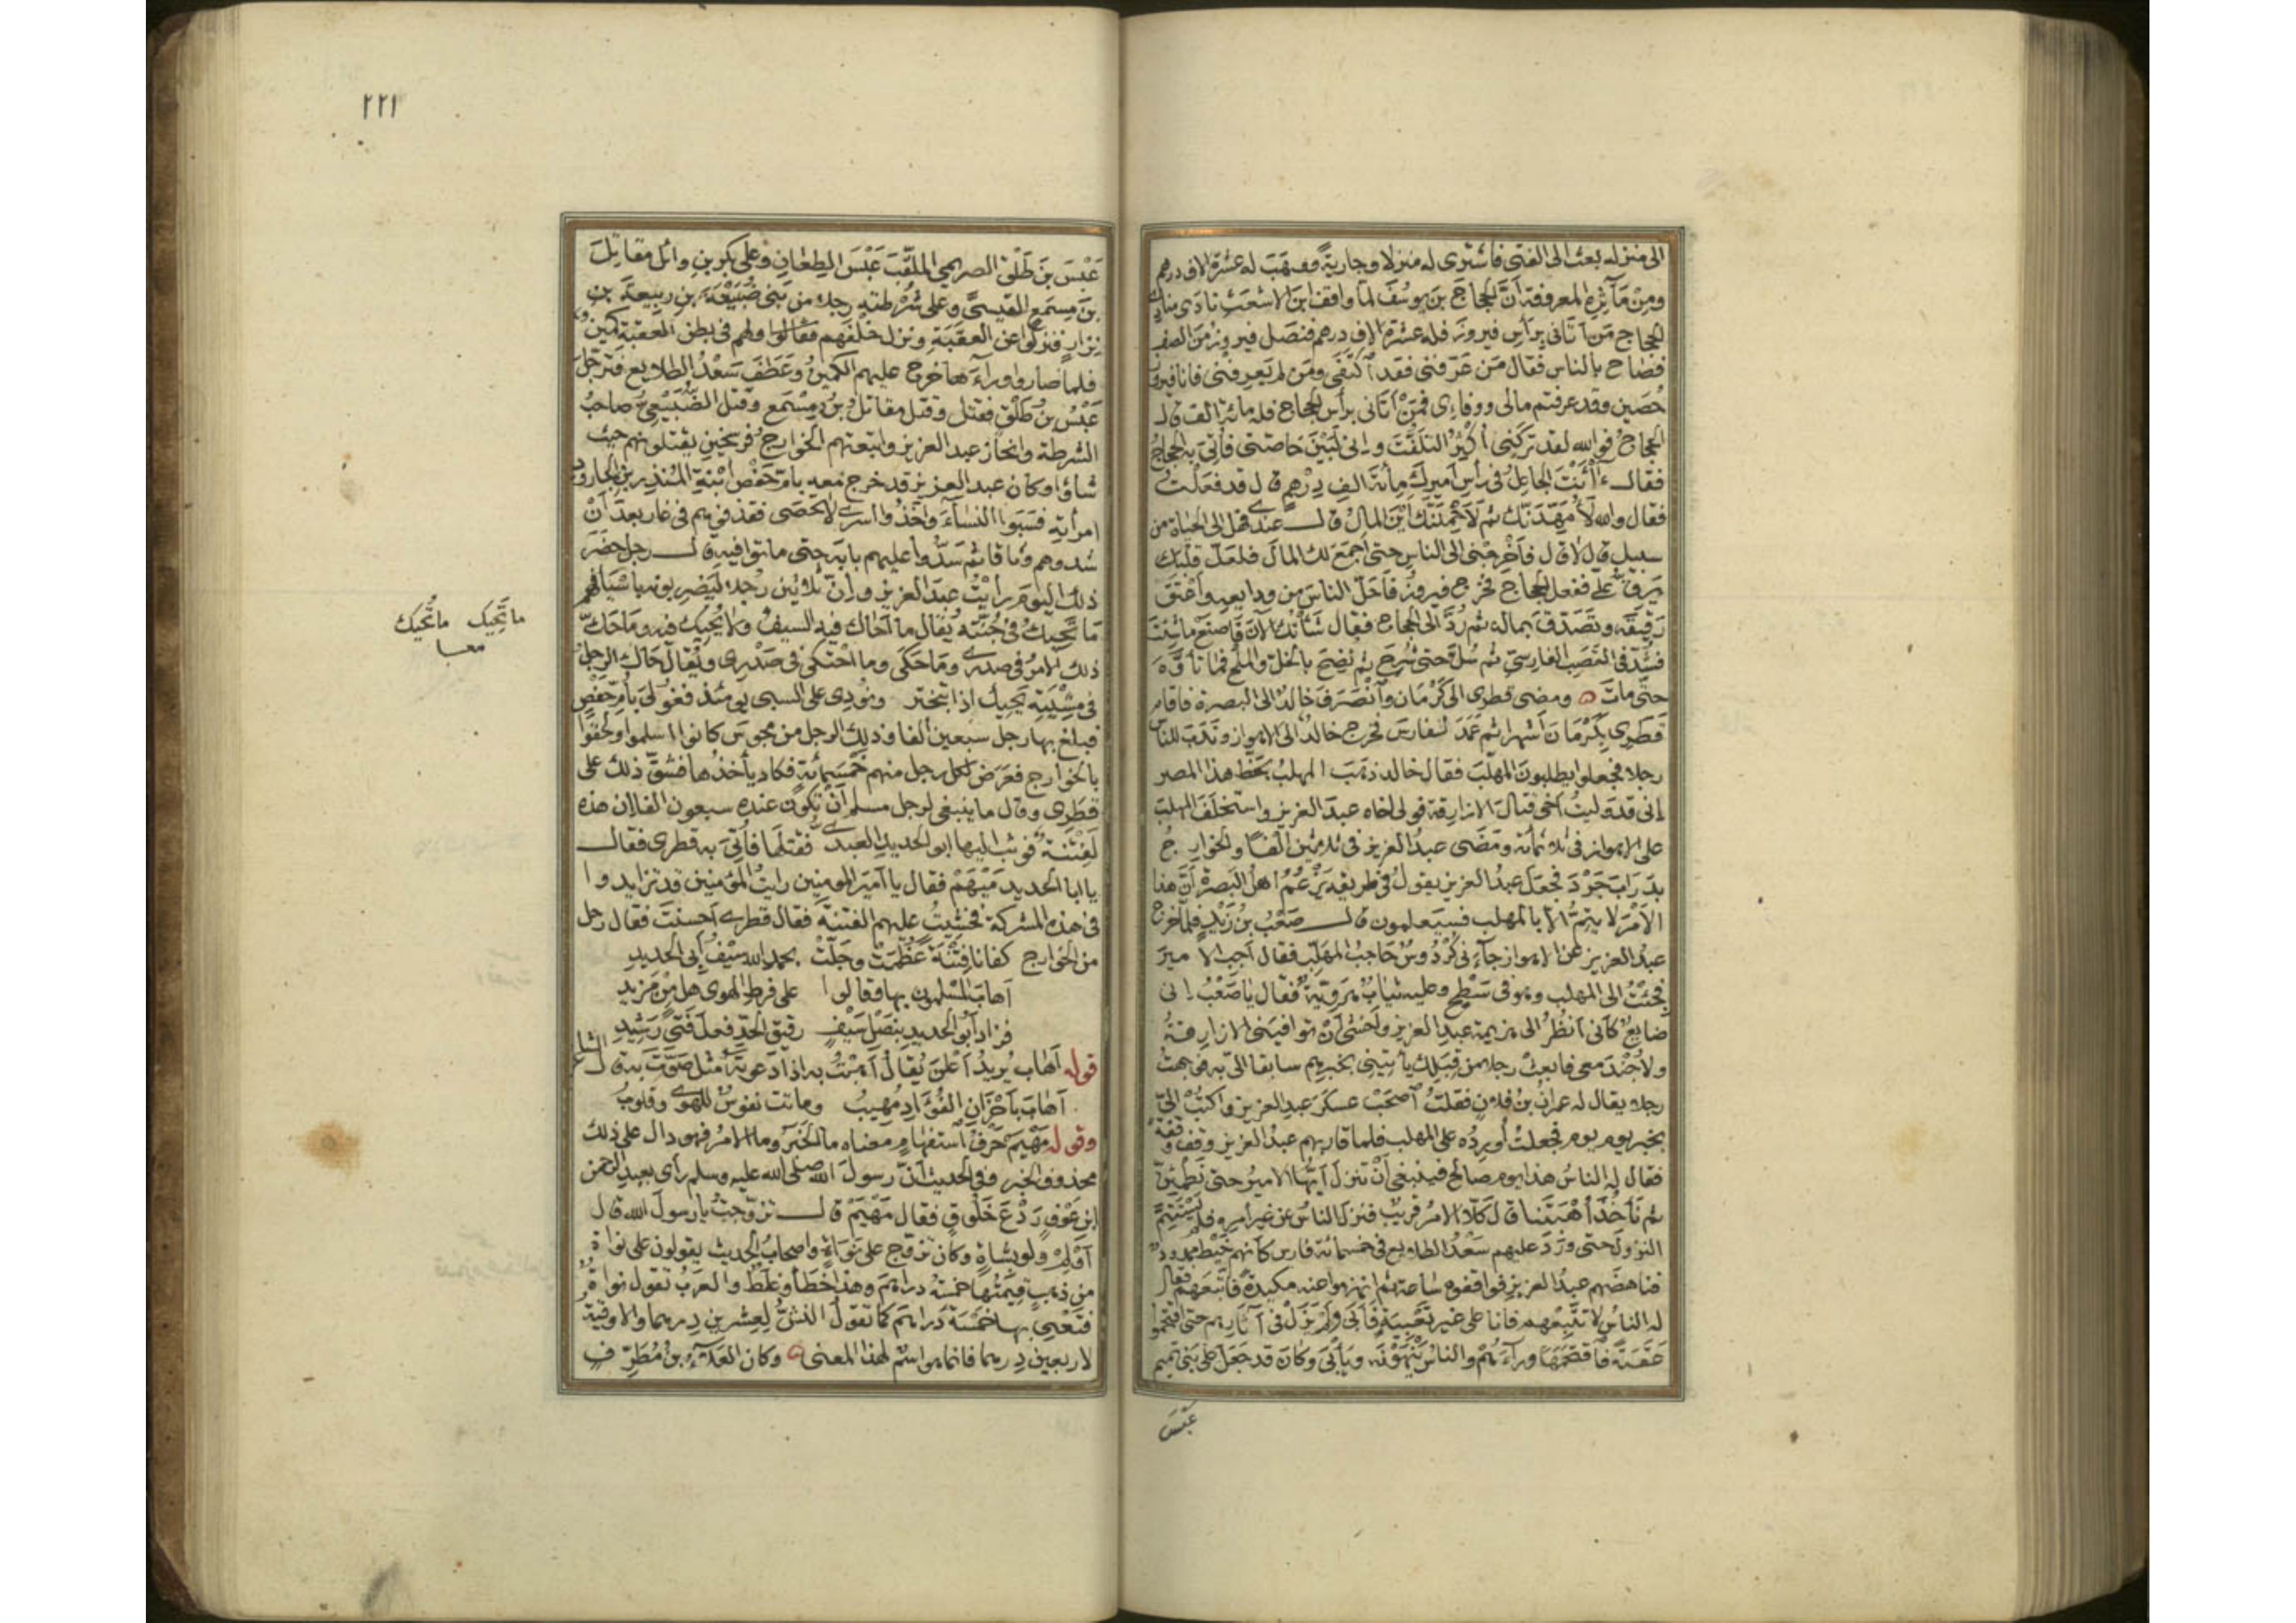 الى منزله بعث الى الفتى فاشترى له منزلا وجارية ووهب له عشرة الاف درهم
ومن مآثره المعروفة أن الحجاج بن يوسف لما واقف ابن الاشعث نادى منادى
الحجاج من أتانى برأس فيروز فله عشرة الاف درهم فنصل فيروز من الصف
فصاح بالناس فقال من عرفنى فقد اكتفى ومن لم يعرفنى فانا فيروز بن
حصين وقد عرفتم مالى ووفاءى فمن أتانى برأس الحجاج فله مائة الف قال
الحجاج فوالله لقد تركنى أكثر التلفت وإنى لبين خاصتى فأتى به الحجاج
فقال أأنت الجاعل فى رأس أميرك مائة الف درهم قال قد فعلت
فقال والله لأمهدنك ثم لأحملنك أين المال قال عندى فهل الى الحياة من
سبيل قال لا قال فأخرجنى الى الناس حتى أجمع لك المال فلعل قلبك
يرق على ففعل الحجاج فخرج فيروز فأحل الناس من ودايعه وأعتق
رقيقه وتصدق بماله ثم رد الى الحجاج فقال شأنك الآن فاصنع ما شئت
فشد فى القصب الفارسى ثم سل حتى شرح ثم نضح بالخل والملح فما تأوه
حتى مات ومضى قطرى الى كرمان وانصرف خالد الى البصرة فاقام
قطرى بكرمان أشهرا ثم عمد لفارس فخرج خالد الى الاهواز وندب للناس
رجلا فجعلوا يطلبون المهلب فقال خالد ذهب المهلب بحظ هذا المصر
إنى قد وليت أخى قتال الازارقة فولى اخاه عبد العزيز واستخلف المهلب
على الاهواز فى ثلاثمائة ومضى عبد العزيز فى ثلاثين ألفا والخوارج
بدرابجرد فجعل عبد العزيز يقول فى طريقه يزعم اهل البصرة أن هذا
الأمر لا يتم الا بالمهلب فسيعلمون قال صعب بن زيد فلما خرج
عبد العزيز عن الاهواز جآءنى كردوس حاجب المهلب فقال أجب الامير
فجئت الى المهلب وهو فى سطح وعليه ثياب هروية فقال يا صعب انى
ضايع كأنى أنظر الى هزيمة عبد العزيز وأخشى أن توافينى الازارقة
ولا جند معى فابعث رجلا من قبلك يأتينى بخبرهم سابقا الى به فوجهت
رجلا يقال له عمران بن فلان فقلت اصحب عسكر عبد العزيز واكتب الى
بخبر يوم يوم فجعلت أورده على المهلب فلما قاربهم عبد العزيز وقف وقفة
فقال له الناس هذا يوم صالح فينبغى أن تنزل أيها الامير حتى نطمئن
ثم نأخذ أهبتنا قال كلا الامر قريب فنزل الناس عن غير امره فلم يستتم
النزول حتى ورد عليهم سعد الطلايع فى خمسمائة فارس كأنهم خيط ممدود
فناهضهم عبد العزيز فواقفوه ساعة ثم انهزموا عنه مكيدة فاتبعهم فقال
له الناس لا تتبعهم فانا على غير تعبية فأبى ولم يزل فى آثارهم حتى اقتحموا
عقبة فاقتحمها ورآءهم والناس ينهونه ويأبى وكان قد جعل على بنى تميم
عبس
٢٢١
عبس بن طلق الصريمى الملقب عبس الطعان وعلى بكر بن وائل مقاتل
بن مسمع القيسى وعلى شرطته رجلا من بنى ضبيعة بن ربيعة بن
نزار فنزلوا عن العقبة ونزل خلفهم فقاتلوا ولهم فى بطن العقبة كمين
فلما صاروا ورآءها خرج عليهم الكمين وعطف سعد الطلايع فترجل
عبس بن طلق فقتل وقتل مقاتل بن مسمع وقتل الضبيعى صاحب
الشرطة وانحاز عبد العزيز واتبعتهم الخوارج فرسخين يقتلونهم حيث
شاؤا وكان عبد العزيز قد خرج معه بام حفص ابنة المنذر بن الجارود
امرأته فسبوا النسآء وأخذوا اسرى لا تحصى فقذفوهم فى غار بعد أن
شدوهم وثاقا ثم سدوا عليهم بابه حتى ماتوا فيه قال رجل حضر
ذلك اليوم رأيت عبد العزيز وإن ثلاثين رجلا ليضربونه باسيافهم
ما تحيك فى جنته يقال ما أحاك فيه السيف وما يحيك فيه وما حك
ذلك الامر فى صدرى وما حكى وما احتكى فى صدرى ويقال حاك الرجل
فى مشيته يحيك إذا تبختر ونودى على السبى يومئذ فغولى بأم حفص
فبلغ بها رجل سبعين الفا وذلك الرجل من مجوس كانوا اسلموا ولحقوا
بالخوارج ففرض لكل رجل منهم خمسمائة فكاد يأخذها فشق ذلك على
قطرى وقال ما ينبغى لرجل مسلم أن تكون عنده سبعون الفا إن هذه
لفتنة فوثب اليها ابو الحديد العبدى فقتلها فأتى به قطرى فقال
يا ابا الحديد مهيم فقال يا أمير المومنين رايت المؤمنين قد تزايدوا
فى هذه المشركة فخشيت عليهم الفتنة فقال قطرى أحسنت فقال رجل
من الخوارج كفانا فتنة عظمت وجلت بحمد الله سيف أبى الحديد
أهاب المسلمون بها وقالوا على فرط الهوى هل من مزيد
فزاد أبو الحديد بنصل سيف رقيق الحد فعل فتى رشيد
قوله أهاب يريد أعلن يقال أهبت به اذا دعوته مثل صوت به قال الشاعر
أهاب بأحزان الفؤاد مهيب وماتت نفوس للهوى وقلوب
وقوله مهيم حرف استفهام معناه ما الخبر وما الامر فهو دال على ذلك
محذوف الخبر وفى الحديث أن رسول الله صلى الله عليه وسلم رأى بعبد الرحمن
ابن عوف ردع خلوق فقال مهيم قال تزوجت يا رسول الله قال
أولم ولو بشاة وكان تزوج على نواة واصحاب الحديث يقولون على نواة
من ذهب قيمتها خمسة دراهم وهذا خطأ وغلط والعرب تقول نواة
فتعنى بها خمسة دراهم كما تقول النش لعشرين درهما والاوقية
لاربعين درهما فانما هو اسم لهذا المعنى وكان العلآء بن مطرف
ما تحيك ما تحيك
معا